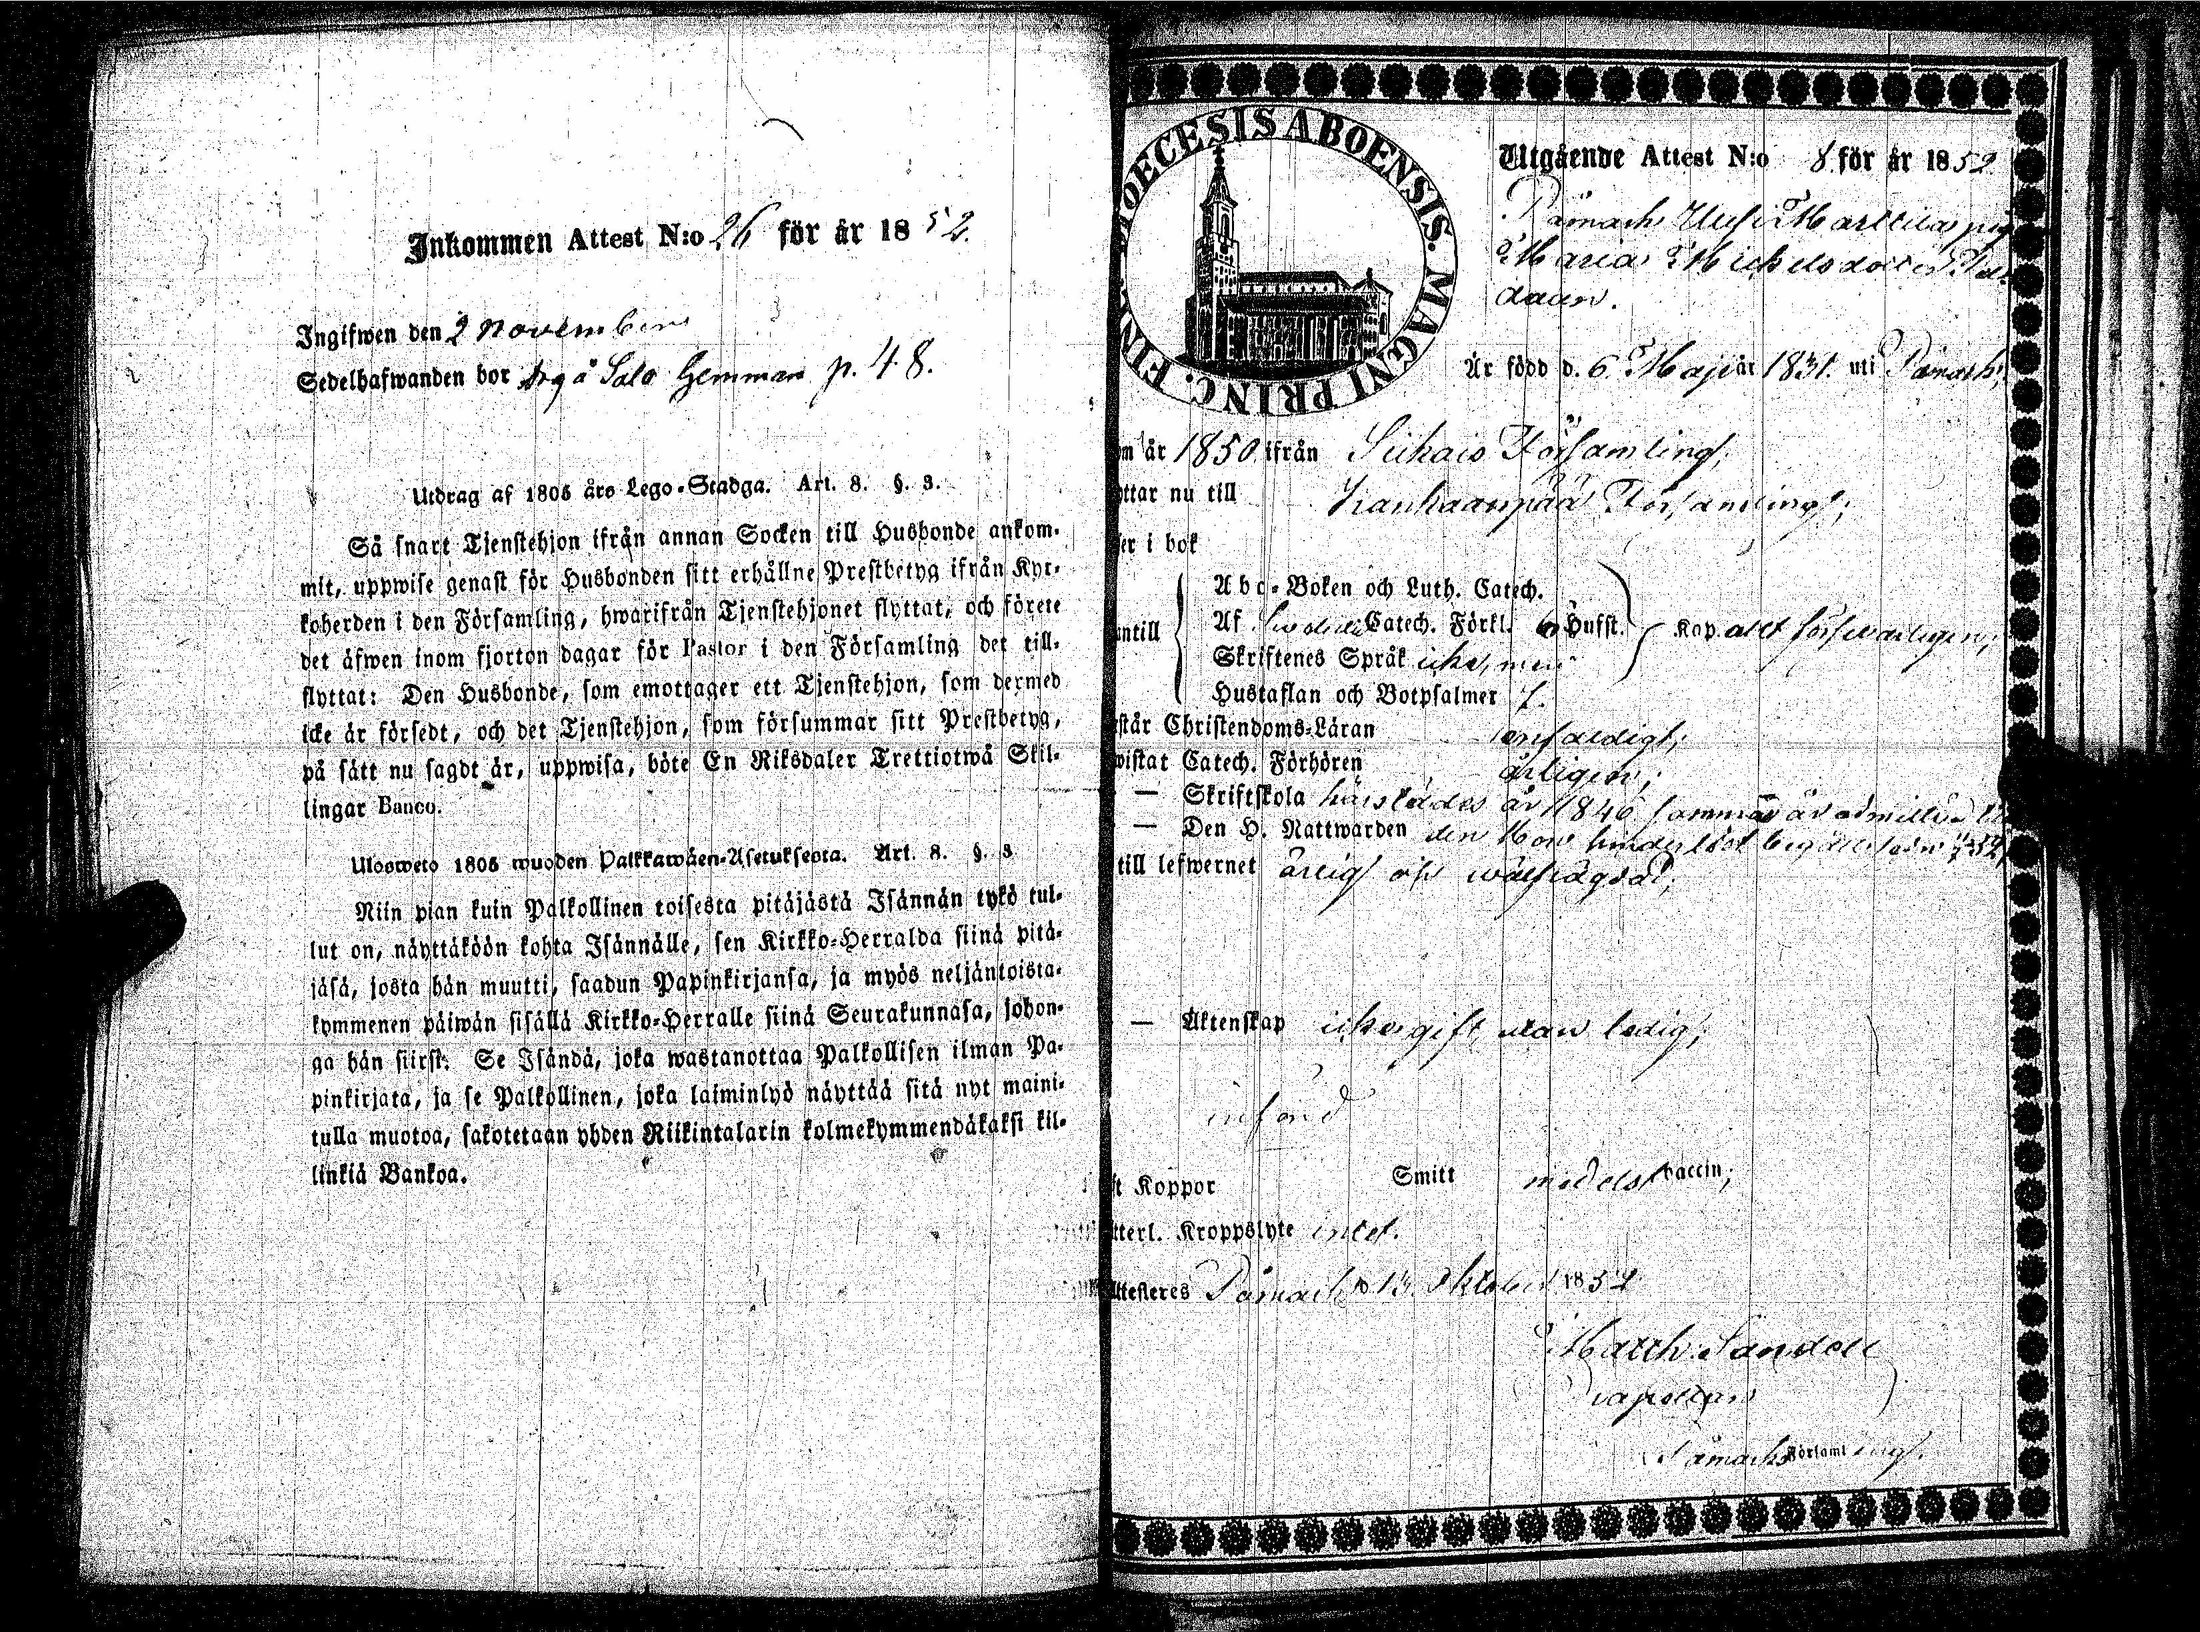 Inkommen Attest N:o 26 för år 1852.
Ingifwen den 2 November
Sedelhafwanden bor Salo Gemman p. 48.
Utdrag af 1805 års Lego-Stadga. Art. 8. §. 3.
Så snart Tjenstehjon ifrån annan Socken till Husbonde ankom-
mit, uppwise genast för Husbonden sitt erhållne Prestbetyg ifrån Kyr-
koherden i den Församling, hwarifrån Tjenstehjonet flyttat, och förete
det äfwen inom fjorton dagar för Pastor i den Församling det till-
flyttat: Den Husbonde, som emottager ett Tjenstehjon, som dermed
icke är försedt, och det Tjenstehjon, som försummar sitt Prestbetyg,
på sätt nu sagdt är, uppwisa, böte En Riksdaler Trettiotwå Skil-
lingar Banco.
Ulosweto 1805 wuoden Palkkawäen-Asetuksesta. Art. 8. §. 3
Niin pian kuin Palkollinen toisesta pitäjästä Isännän tykö tul-
lut on, näyttäköön kohta Isännälle, sen Kirkko-Herralda siinä pitä-
jäsä, josta hän muutti, saadun Papinkirjansa, ja myös neljäntoista-
kymmenen päiwän sisällä Kirkko-Herralle siinä Seurakunnasa, johon-
ga hän siirst: Se Isändä, joka wastanottaa Palkollisen ilman Pa-
pinkirjata, ja se Palkollinen, joka laiminlyö näyttää sitä nyt maini-
tulla muotoa, sakotetaan yhden Riikintalarin kolmekymmendäkaksi kil-
linkiä Bankoa.
DIOECESIS ABOENSIS. MAGNI PRINC. FINL.
Utgående Attest N:o 8 för år 1852
Påmark Marttila pig
Maria Michelsdotter
daun.
Är född d. 6 Maji år 1831. uti Påmark;
om år 1850 ifrån Siikais Församling;
ttar nu till Kankaanpää Församling;
er i bok
Abc-Boken och Luth. Catech.
antill Af Svedelii Catech. Förkl. 6 Hufst. Kap. allt förswarligen;
Skriftenes Språk icke, men
Hustaflan och Botpsalmer 7.
står Christendoms-Läran enfaldigt;
wistat Catech. Förhören årligen;
— Skriftskola härstädes år 1846 samma år admitterad
— Den H. Nattwarden den Hon hinderlöst begått sedan
till lefwernet ärlig och wälfrägdad;
— Äktenskap icke gift utan ledig;
införd
ft Koppor Smitt medelst vaccin;
tterl. Kroppslyte intet.
Attesteras Påmark d. 13 Oktober 1852
Matth. Sandell
Capellan
Påmarks Församling.